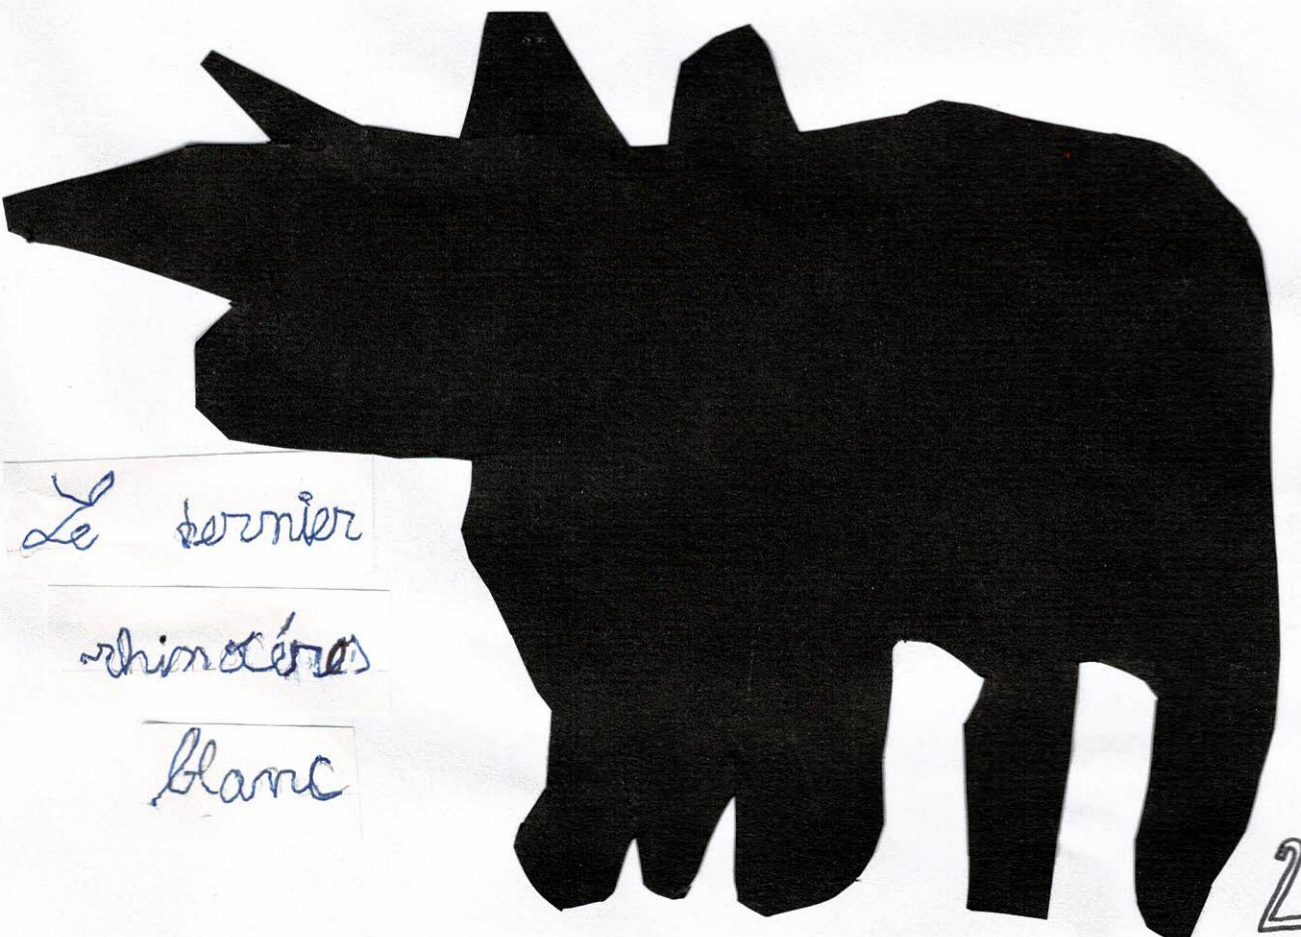 Le dernier
rhinocéros
blanc
2